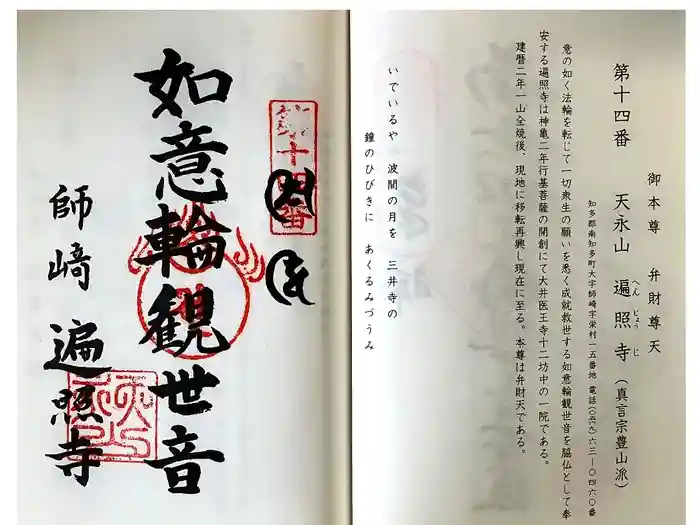 御本尊 弁財尊天
第十四番 天永山 遍照寺(真言宗豊山派)
へんじょうじ
知多郡南知多町大字師崎字栄村一五番地 電話(〇五六九)六三―〇四六〇番
意の如く法輪を転じて一切衆生の願いを悉く成就救世する如意輪観世音を脇仏として奉
安する遍照寺は神亀二年行基菩薩の開創にて大井医王寺十二坊中の一院である。
建暦二年一山全焼後、現地に移転再興し現在に至る。本尊は弁財天である。
いでいるや 波間の月を 三井寺の
鐘のひびきに あくるみづうみ
第十四番
如意輪観世音
師崎 遍照寺